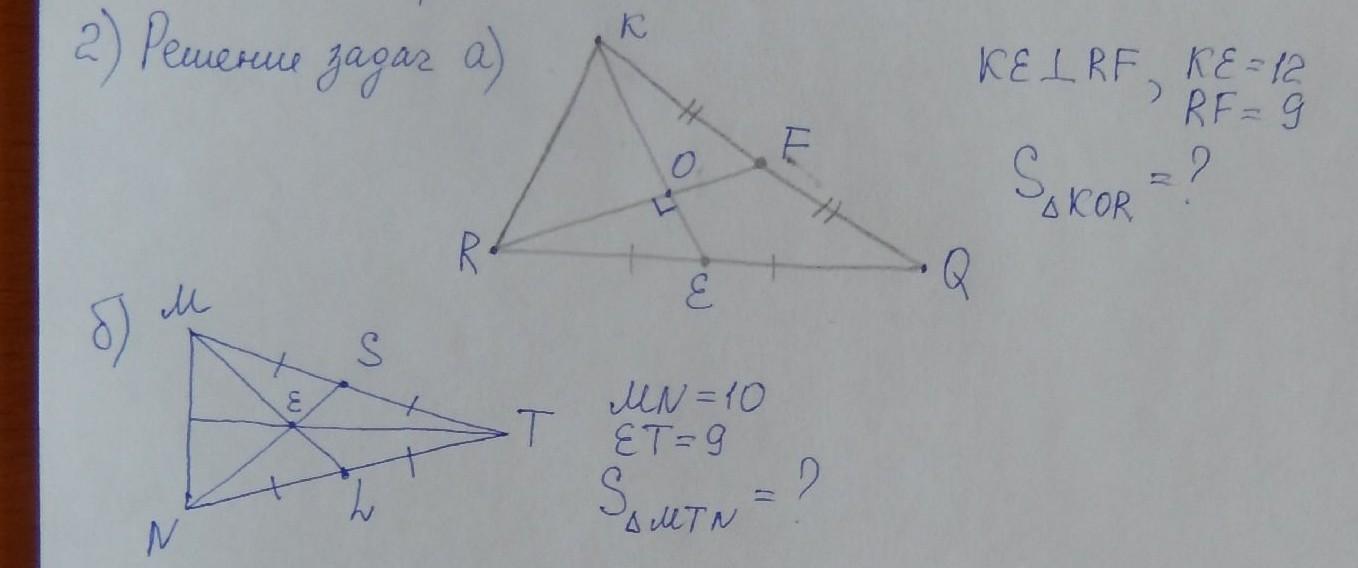 2) Решение задач а)
K
F
O
R
E
Q
KE⊥RF, KE=12
RF=9
S△KOR=?
б)
M
S
E
T
L
N
MN=10
ET=9
S△MTN=?